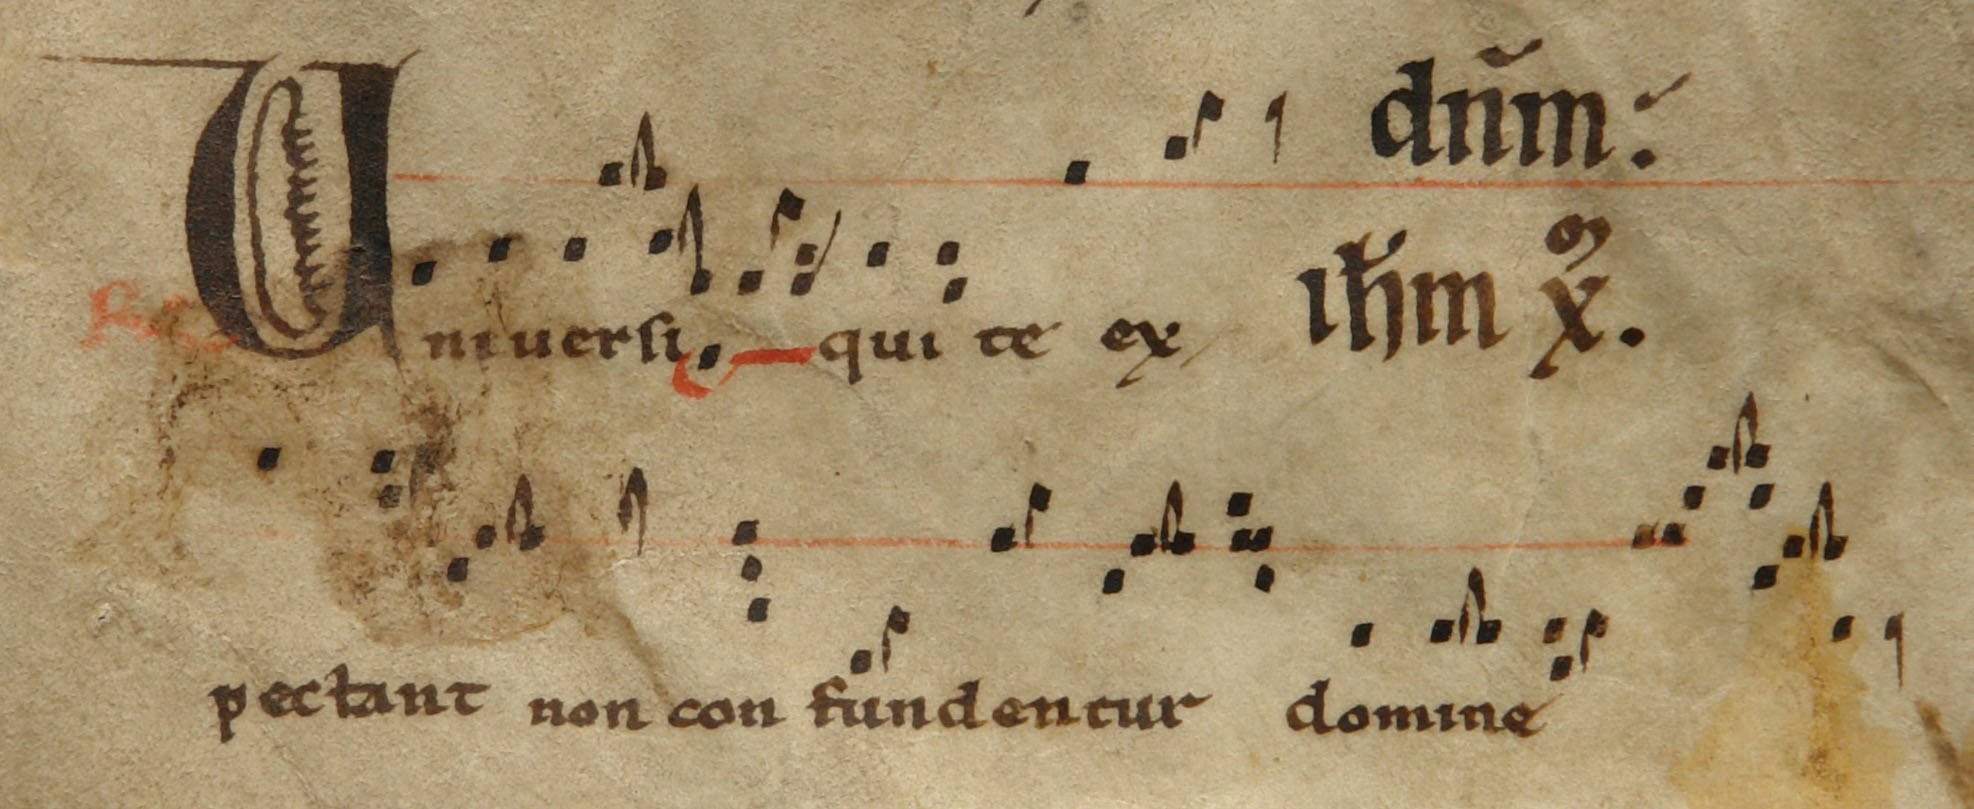 dn̄m:
Uniuersi. qui te ex ih̄m
pectant non con fundentur domine